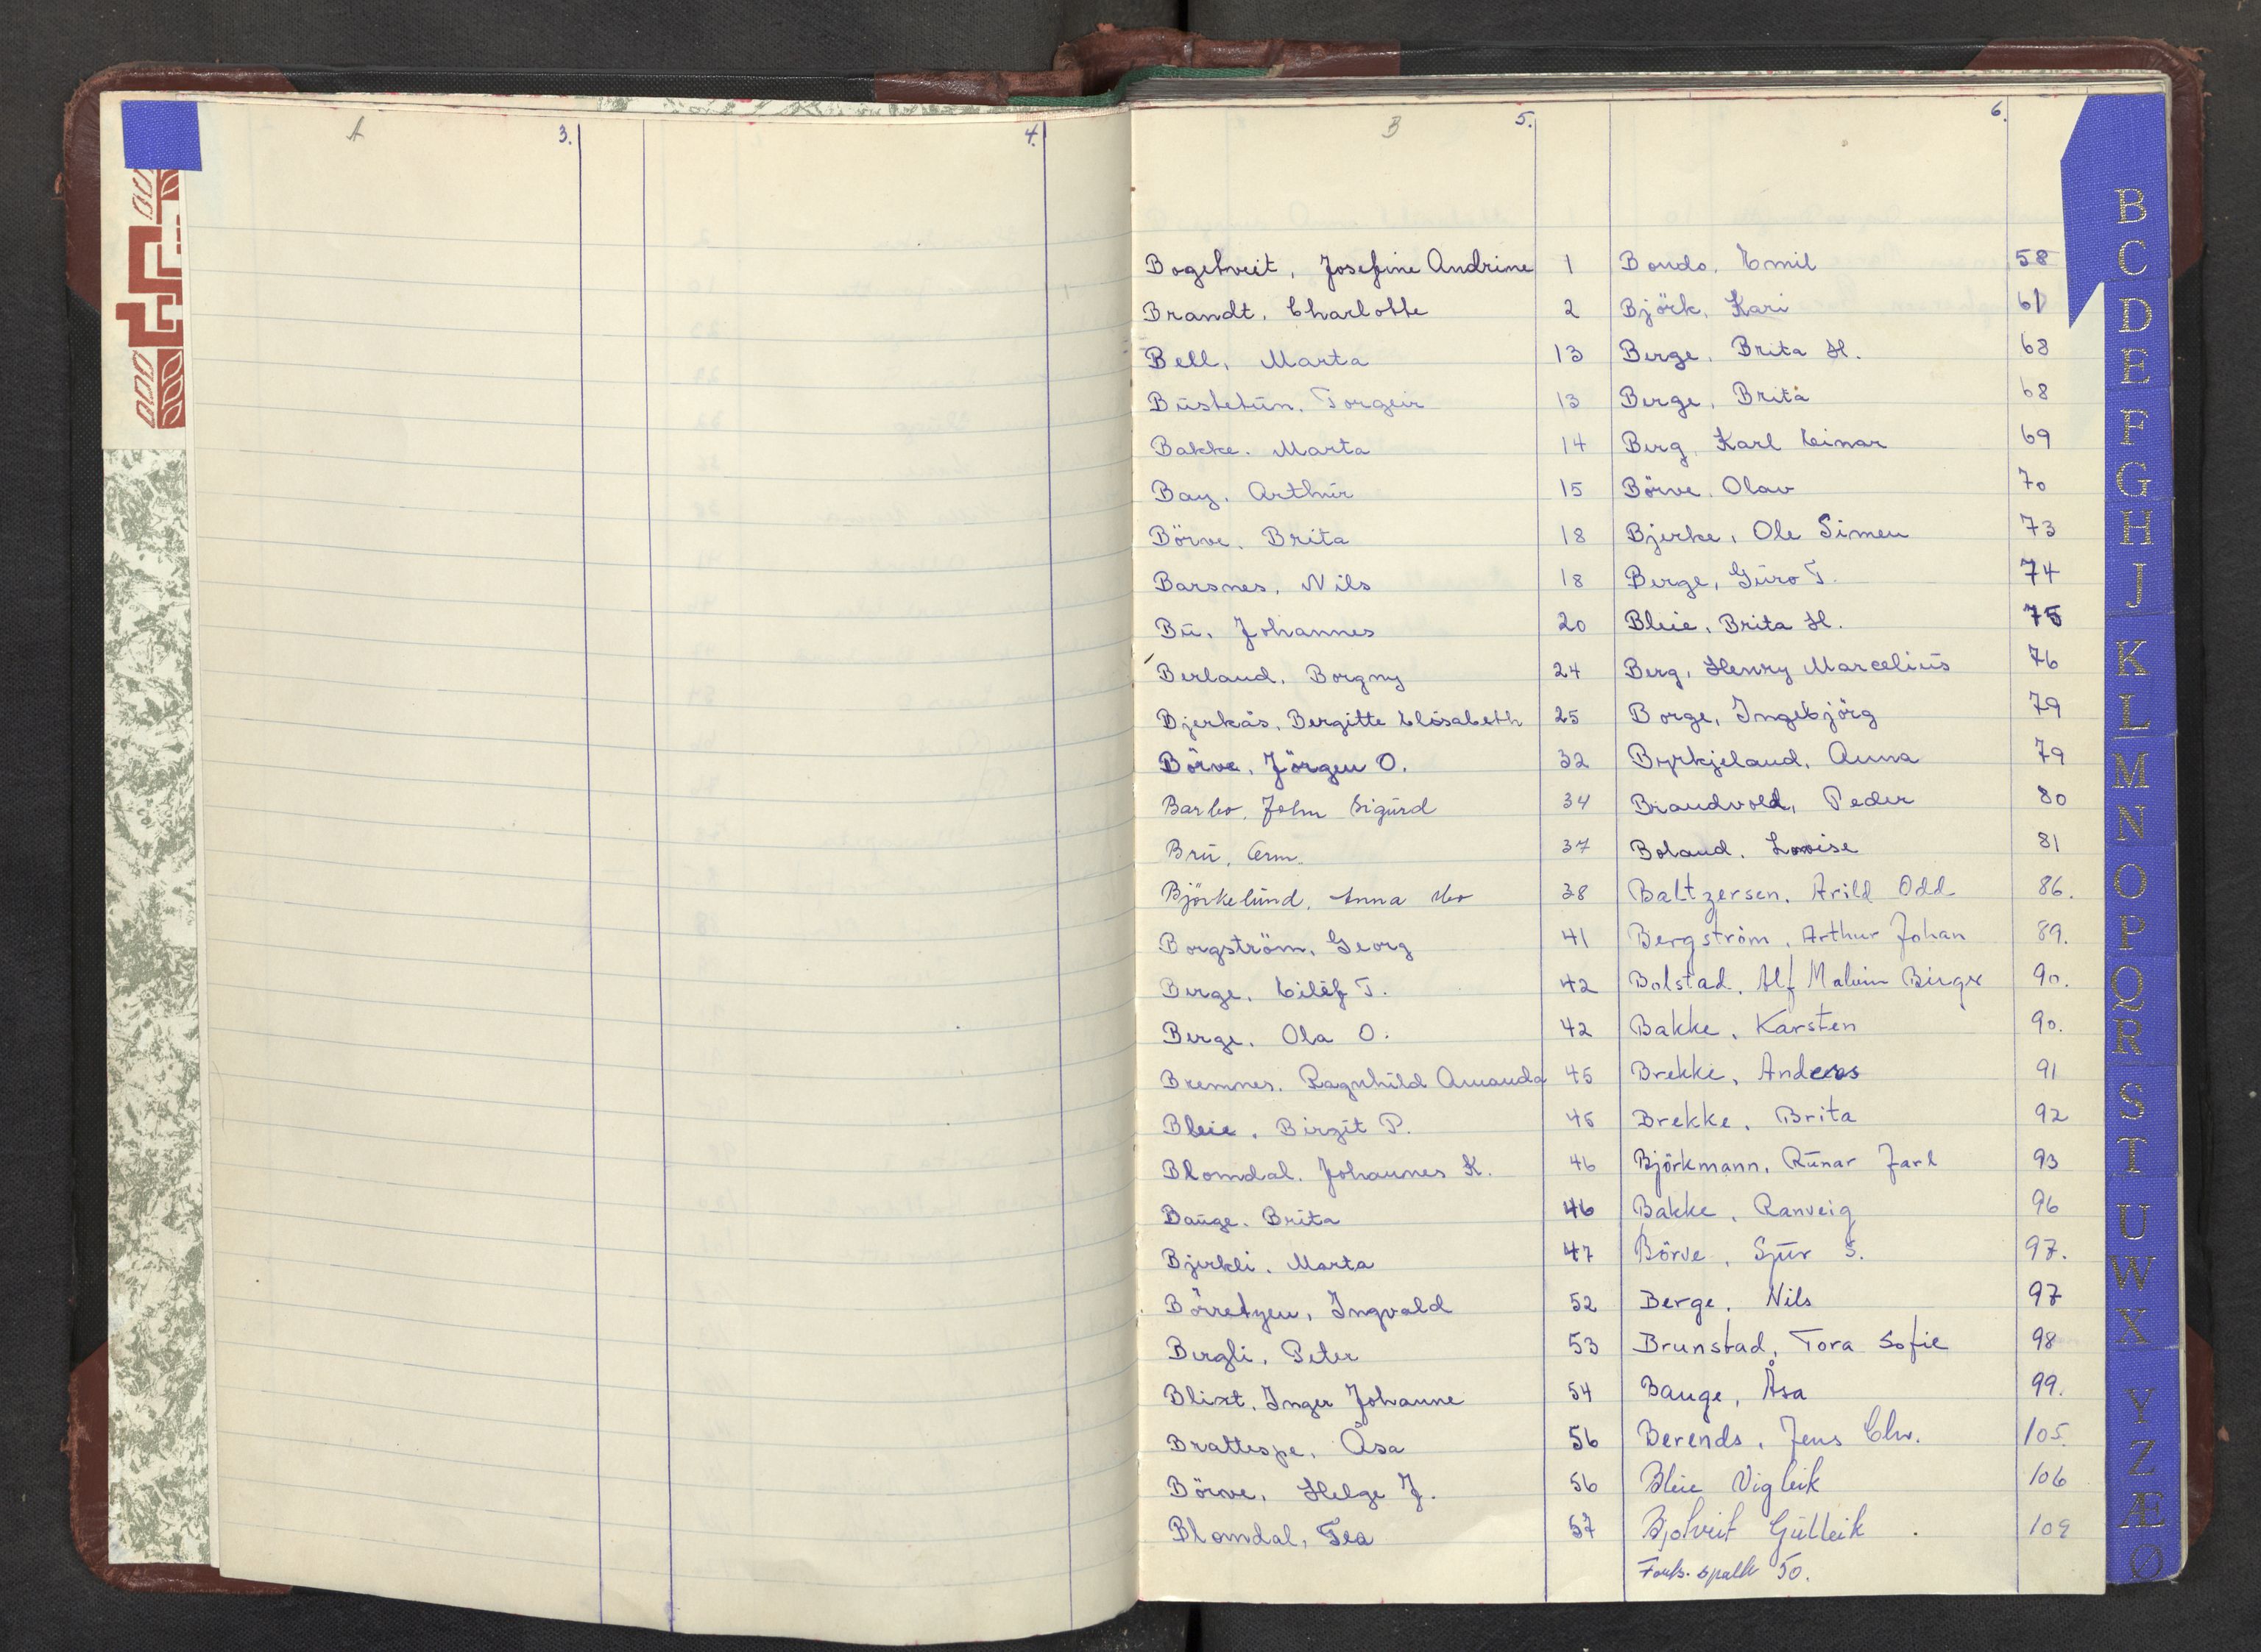 A 3. 4.
B 5. 6.
Bogetveit, Josefine Andrine 1
Brandt, Charlotte 2
Bell, Marta 13
Büstetün, Torgeir 13
Bakke, Marta 14
Bay, Arthür 15
Börve, Brita 18
Barsnes, Nils 18
Bü, Johannes 20
Berland, Borgny 24
Bjerkås, Bergitte Elisabeth 25
Börve, Jörgen O. 32
Barbo, John Sigürd 34
Brü, Arm. 37
Björkelünd, Anna 38
Borgström, Georg 41
Berge, Eilef T. 42
Berge, Ola O. 42
Bremnes, Ragnhild Amanda 45
Bleie, Birgit P. 45
Blomdal, Johannes K. 46
Baüge, Brita 46
Bjerkli, Marta 47
Börretzen, Ingvald 52
Bergli, Peter 53
Blixt, Inger Johanne 54
Brattespe, Åsa 56
Börve, Helge J. 56
Blomdal, Tea 57
Bondo, Emil 58
Björk, Kari 61
Berge, Brita H. 68
Berge, Brita 68
Berg, Karl Einar 69
Börve, Olav 70
Bjerke, Ole Simen 73
Berge, Güro T. 74
Bleie, Brita H. 75
Berg, Henry Marceliüs 76
Borge, Ingebjörg 79
Byrkjeland, Anna 79
Brandvold, Peder 80
Boland, Lovise 81
Baltzersen, Arild Odd 86.
Bergström, Arthur Johan 89.
Bolstad, Alf Malvin Birger 90.
Bakke, Karsten 90.
Brekke, Anders 91
Brekke, Brita 92
Björkmann, Rünar Jarl 93
Bakke, Ranveig 96
Börve, Sjür S. 97.
Berge, Nils 97
Brunstad, Tora Sofie 98
Bauge, Åsa 99.
Berends, Jens Chr. 105.
Bleie Vigleik 106
Bjotveit Gülleik . 109
Forts. spalte 50.
B
C
D
E
F
G
H
J
K
L
M
N
O
P
Q
R
S
T
U
W
X
Y
Z
Æ
Ø